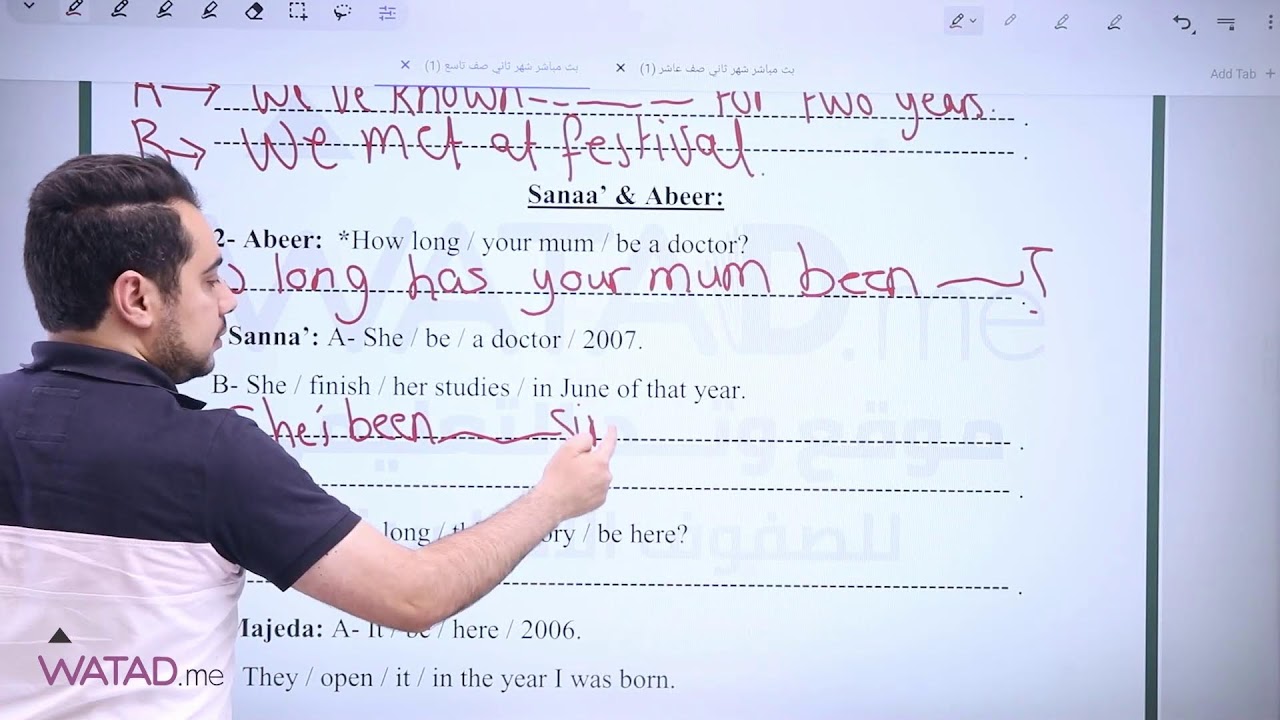 بث مباشر شهر ثاني صف تاسع (1)
بث مباشر شهر ثاني صف عاشر (1)
Add Tab +
A → We've known for two years.
B → We met at festival.
Sanaa' & Abeer:
2- Abeer: *How long / your mum / be a doctor?
long has your mum been ?
Sanna': A- She / be / a doctor / 2007.
B- She / finish / her studies / in June of that year.
She's been
long / / be here?
Majeda: A- It / be / here / 2006.
They / open / it / in the year I was born.
WATAD.me
WATAD.me